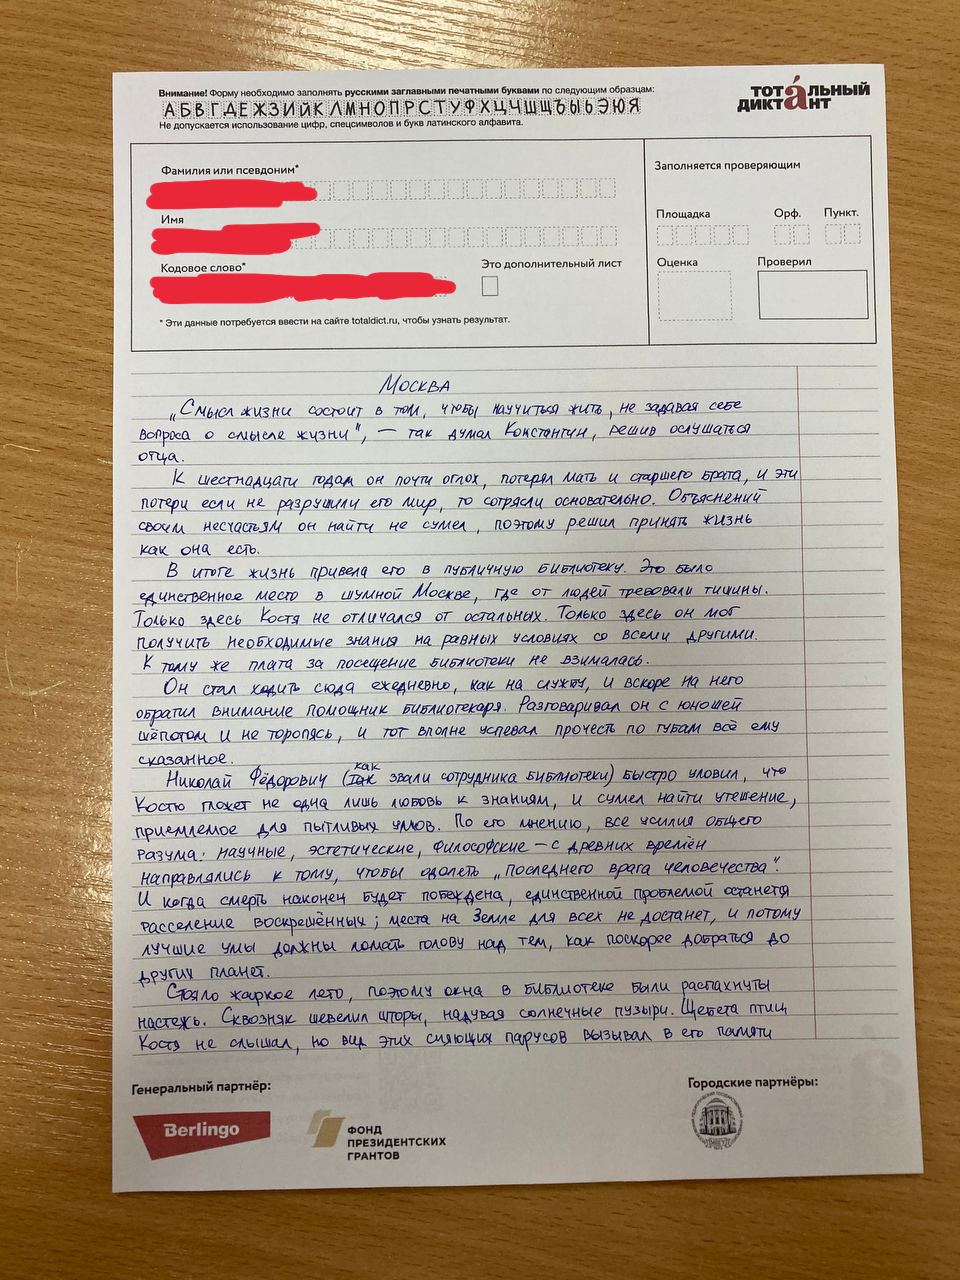 Внимание! Форму необходимо заполнять русскими заглавными печатными буквами по следующим образцам:
АБВГДЕЖЗИЙКЛМНОПРСТУФХЦЧШЩЪЫЬЭЮЯ
Не допускается использование цифр, спецсимволов и букв латинского алфавита.
тотальный
диктант
Фамилия или псевдоним*
Имя
Кодовое слово*
Это дополнительный лист
* Эти данные потребуется ввести на сайте totaldict.ru, чтобы узнать результат.
Заполняется проверяющим
Площадка Орф. Пункт.
Оценка Проверил
Москва
„Смысл жизни состоит в том, чтобы научиться жить, не задавая себе
вопроса о смысле жизни", — так думал Константин, решив ослушаться
отца.
К шестнадцати годам он почти оглох, потерял мать и старшего брата, и эти
потери если не разрушили его мир, то сотрясли основательно. Объяснений
своим несчастьям он найти не сумел, поэтому решил принять жизнь
как она есть.
В итоге жизнь привела его в публичную библиотеку. Это было
единственное место в шумной Москве, где от людей требовали тишины.
Только здесь Костя не отличался от остальных. Только здесь он мог
получить необходимые знания на равных условиях со всеми другими.
К тому же плата за посещение библиотеки не взималась.
Он стал ходить сюда ежедневно, как на службу, и вскоре на него
обратил внимание помощник библиотекаря. Разговаривал он с юношей
шёпотом и не торопясь, и тот вполне успевал прочесть по губам всё ему
сказанное.
как
Николай Фёдорович (так звали сотрудника библиотеки) быстро уловил, что
Костю гложет не одна лишь любовь к знаниям, и сумел найти утешение,
приемлемое для пытливых умов. По его мнению, все усилия общего
разума: научные, эстетические, философские — с древних времён
направлялись к тому, чтобы одолеть „последнего врага человечества".
И когда смерть наконец будет побеждена, единственной проблемой останется
расселение воскрешённых; места на Земле для всех не достанет, и потому
лучшие умы должны ломать голову над тем, как поскорее добраться до
других планет.
Стояло жаркое лето, поэтому окна в библиотеке были распахнуты
настежь. Сквозняк шевелил шторы, надувая солнечные пузыри. Щебета птиц
Костя не слышал, но вид этих сияющих парусов вызывал в его памяти
Генеральный партнёр:
Berlingo
ФОНД
ПРЕЗИДЕНТСКИХ
ГРАНТОВ
Городские партнёры: